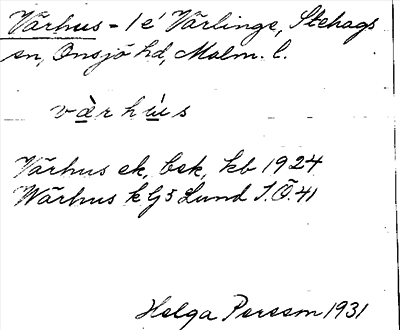 Vårhus - 1 e' Värlinge, Stehags
sn, Onsjö hd, Malm. l.
v æ̀ r h ú̶ s
Värhus ek, bsk, kb 1924
Wärhus k G5 Lund S.Ö.41
Helga Persson 1931